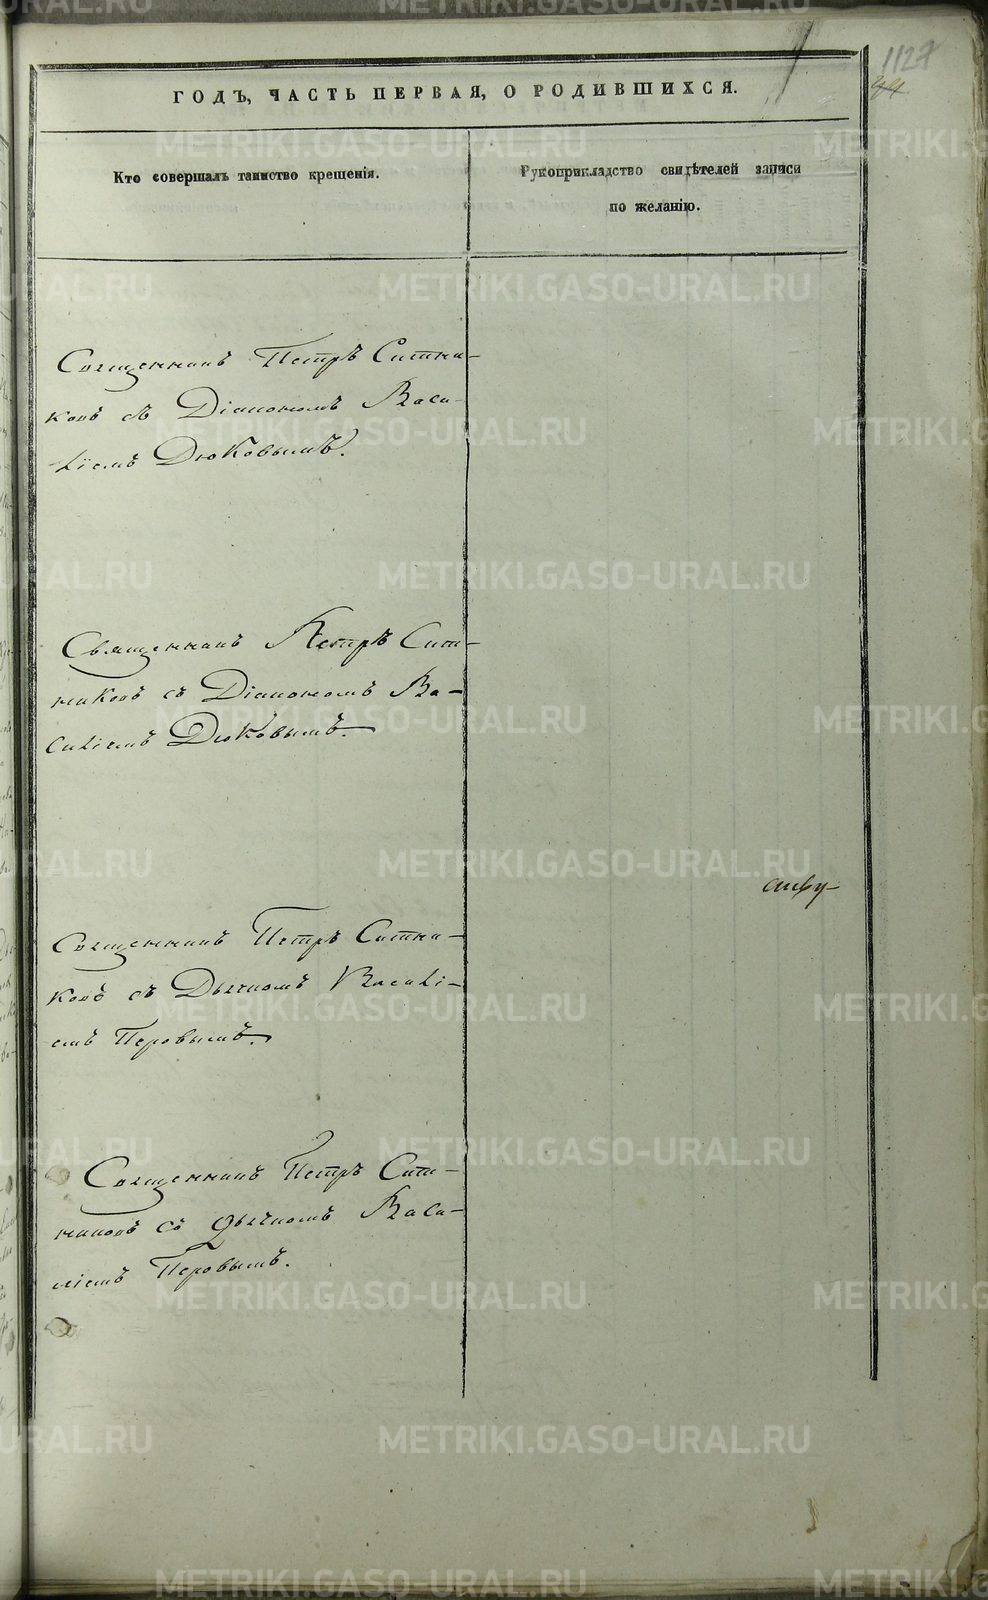 1127
ГОДЪ, ЧАСТЬ ПЕРВАЯ, О РОДИВШИХСЯ.
Кто совершалъ таинство крещенія.
Рукоприкладство свидѣтелей записи
по желанію.
Священникъ Петръ Ситни-
ковъ съ Діакономъ Васи-
ліемъ Дюковымъ.
Священникъ Петръ Сит-
никовъ съ Діакономъ Ва-
силіемъ Дюковымъ.
Священникъ Петръ Ситни-
ковъ съ Дьячкомъ Василі-
емъ Перовымъ.
Священникъ Петръ Сит-
никовъ съ дьячкомъ Васи-
ліемъ Перовымъ.
METRIKI.GASO-URAL.RU